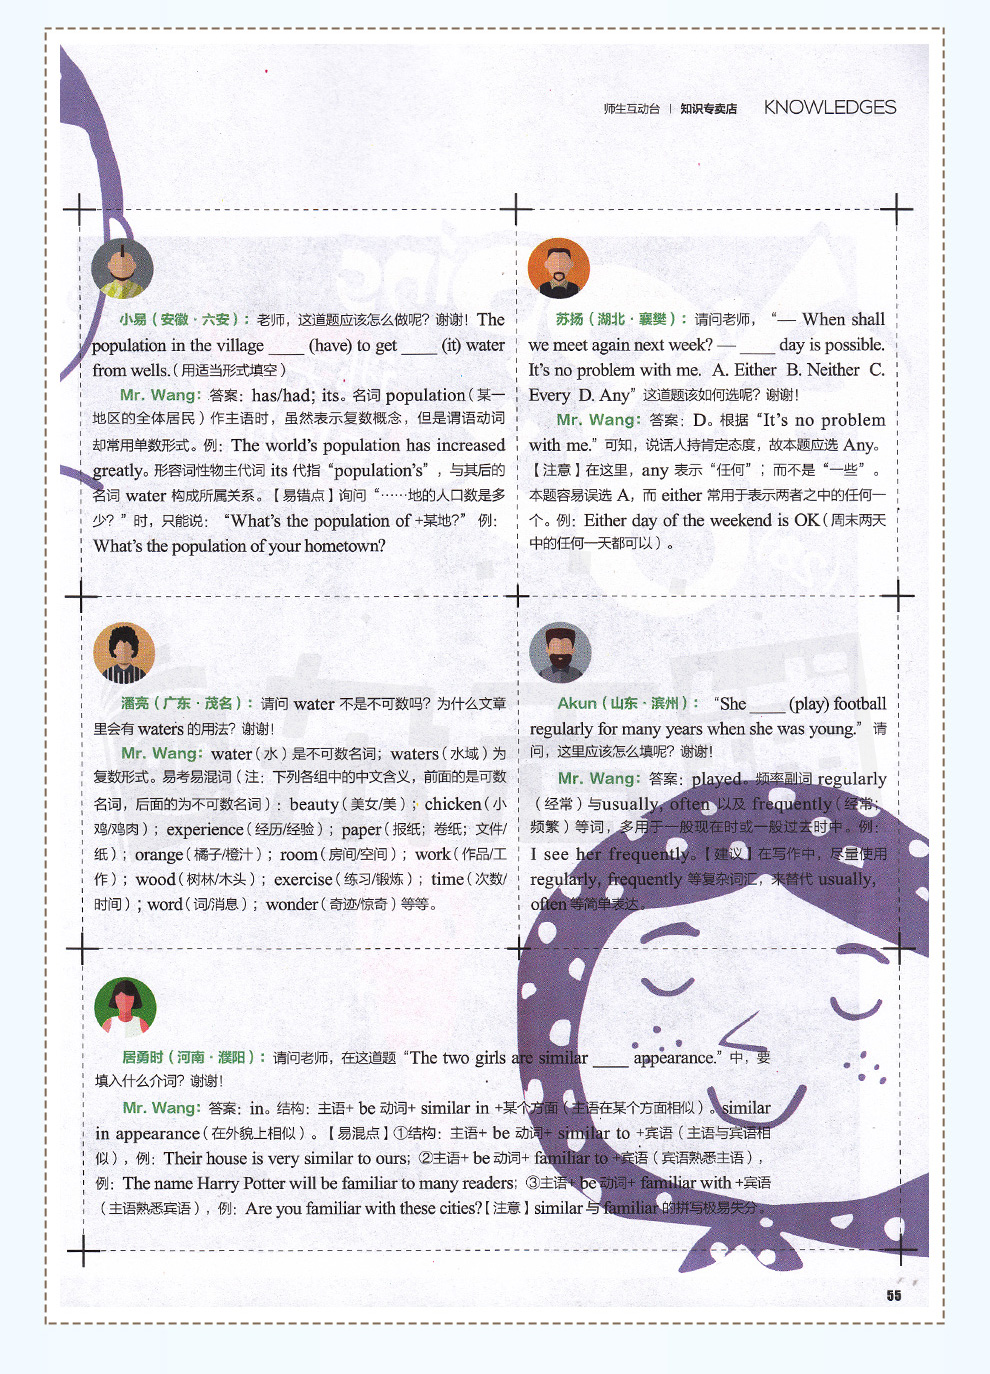 师生互动台 | 知识专卖店 KNOWLEDGES
小易（安徽·六安）：老师，这道题应该怎么做呢？谢谢！The
population in the village ____ (have) to get ____ (it) water
from wells.（用适当形式填空）
Mr. Wang：答案：has/had; its。名词 population（某一
地区的全体居民）作主语时，虽然表示复数概念，但是谓语动词
却常用单数形式。例：The world's population has increased
greatly。形容词性物主代词 its 代指“population's”，与其后的
名词 water 构成所属关系。【易错点】询问“……地的人口数是多
少？”时，只能说：“What's the population of +某地?” 例：
What's the population of your hometown?
苏扬（湖北·襄樊）：请问老师，“— When shall
we meet again next week? — ____ day is possible.
It's no problem with me. A. Either B. Neither C.
Every D. Any”这道题该如何选呢？谢谢！
Mr. Wang：答案：D。根据“It's no problem
with me.”可知，说话人持肯定态度，故本题应选 Any。
【注意】在这里，any 表示“任何”；而不是“一些”。
本题容易误选 A，而 either 常用于表示两者之中的任何一
个。例：Either day of the weekend is OK（周末两天
中的任何一天都可以）。
潘亮（广东·茂名）：请问 water 不是不可数吗？为什么文章
里会有 waters 的用法？谢谢！
Mr. Wang：water（水）是不可数名词；waters（水域）为
复数形式。易考易混词（注：下列各组中的中文含义，前面的是可数
名词，后面的为不可数名词）：beauty（美女/美）；chicken（小
鸡/鸡肉）；experience（经历/经验）；paper（报纸；卷纸；文件/
纸）；orange（橘子/橙汁）；room（房间/空间）；work（作品/工
作）；wood（树林/木头）；exercise（练习/锻炼）；time（次数/
时间）；word（词/消息）；wonder（奇迹/惊奇）等等。
Akun（山东·滨州）：“She ____ (play) football
regularly for many years when she was young.” 请
问，这里应该怎么填呢？谢谢！
Mr. Wang：答案：played。频率副词 regularly
（经常）与usually, often 以及 frequently（经常；
频繁）等词，多用于一般现在时或一般过去时中。例：
I see her frequently。【建议】在写作中，尽量使用
regularly, frequently 等复杂词汇，来替代 usually,
often 等简单表达。
居勇时（河南·濮阳）：请问老师，在这道题“The two girls are similar ____ appearance.”中，要
填入什么介词？谢谢！
Mr. Wang：答案：in。结构：主语+ be 动词+ similar in +某个方面（主语在某个方面相似）。similar
in appearance（在外貌上相似）。【易混点】①结构：主语+ be 动词+ similar to +宾语（主语与宾语相
似），例：Their house is very similar to ours; ②主语+ be 动词+ familiar to +宾语（宾语熟悉主语），
例：The name Harry Potter will be familiar to many readers; ③主语+ be 动词+ familiar with +宾语
（主语熟悉宾语），例：Are you familiar with these cities?【注意】similar 与 familiar 的拼写极易失分。
55